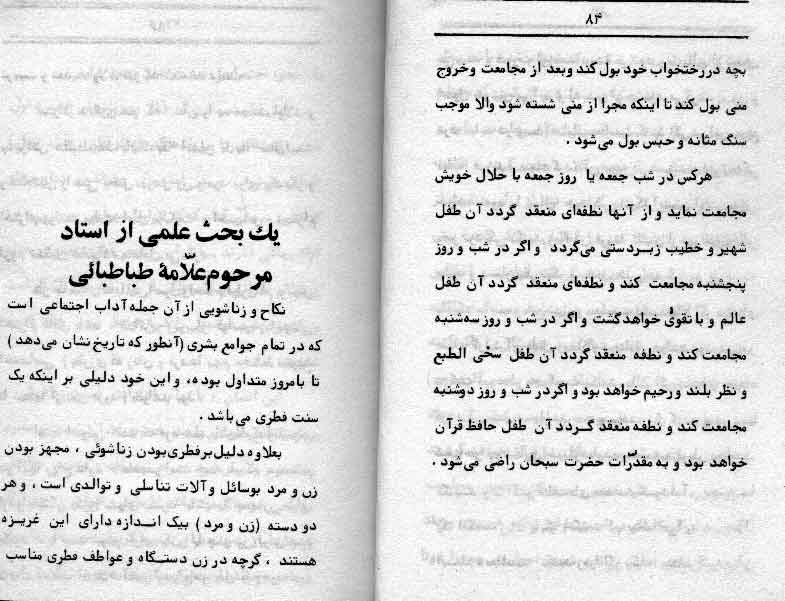 ۸۴
بچه در رختخواب خود بول کند و بعد از مجامعت و خروج
منی بول کند تا اینکه مجرا از منی شسته شود والا موجب
سنگ مثانه و حبس بول می‌شود .
هرکس در شب جمعه یا روز جمعه با حلال خویش
مجامعت نماید و از آنها نطفه‌ای منعقد گردد آن طفل
شهیر و خطیب زبردستی می‌گردد و اگر در شب و روز
پنجشنبه مجامعت کند و نطفه‌ای منعقد گردد آن طفل
عالم و با تقویٰ خواهد گشت و اگر در شب و روز سه‌شنبه
مجامعت کند و نطفه منعقد گردد آن طفل سخی الطبع
و نظر بلند و رحیم خواهد بود و اگر در شب و روز دوشنبه
مجامعت کند و نطفه منعقد گردد آن طفل حافظ قرآن
خواهد بود و به مقدّرات حضرت سبحان راضی می‌شود .
یك بحث علمی از استاد
مرحوم علّامۀ طباطبائی
نکاح و زناشویی از آن جمله آداب اجتماعی است
که در تمام جوامع بشری (آنطور که تاریخ نشان می‌دهد)
تا بامروز متداول بوده، و این خود دلیلی بر اینکه یک
سنت فطری می‌باشد .
بعلاوه دلیل بر فطری بودن زناشوئی ، مجهز بودن
زن و مرد بوسائل و آلات تناسلی و توالدی است ، و هر
دو دسته (زن و مرد) بیک اندازه دارای این غریزه
هستند ، گرچه در زن دستگاه و عواطف فطری مناسب